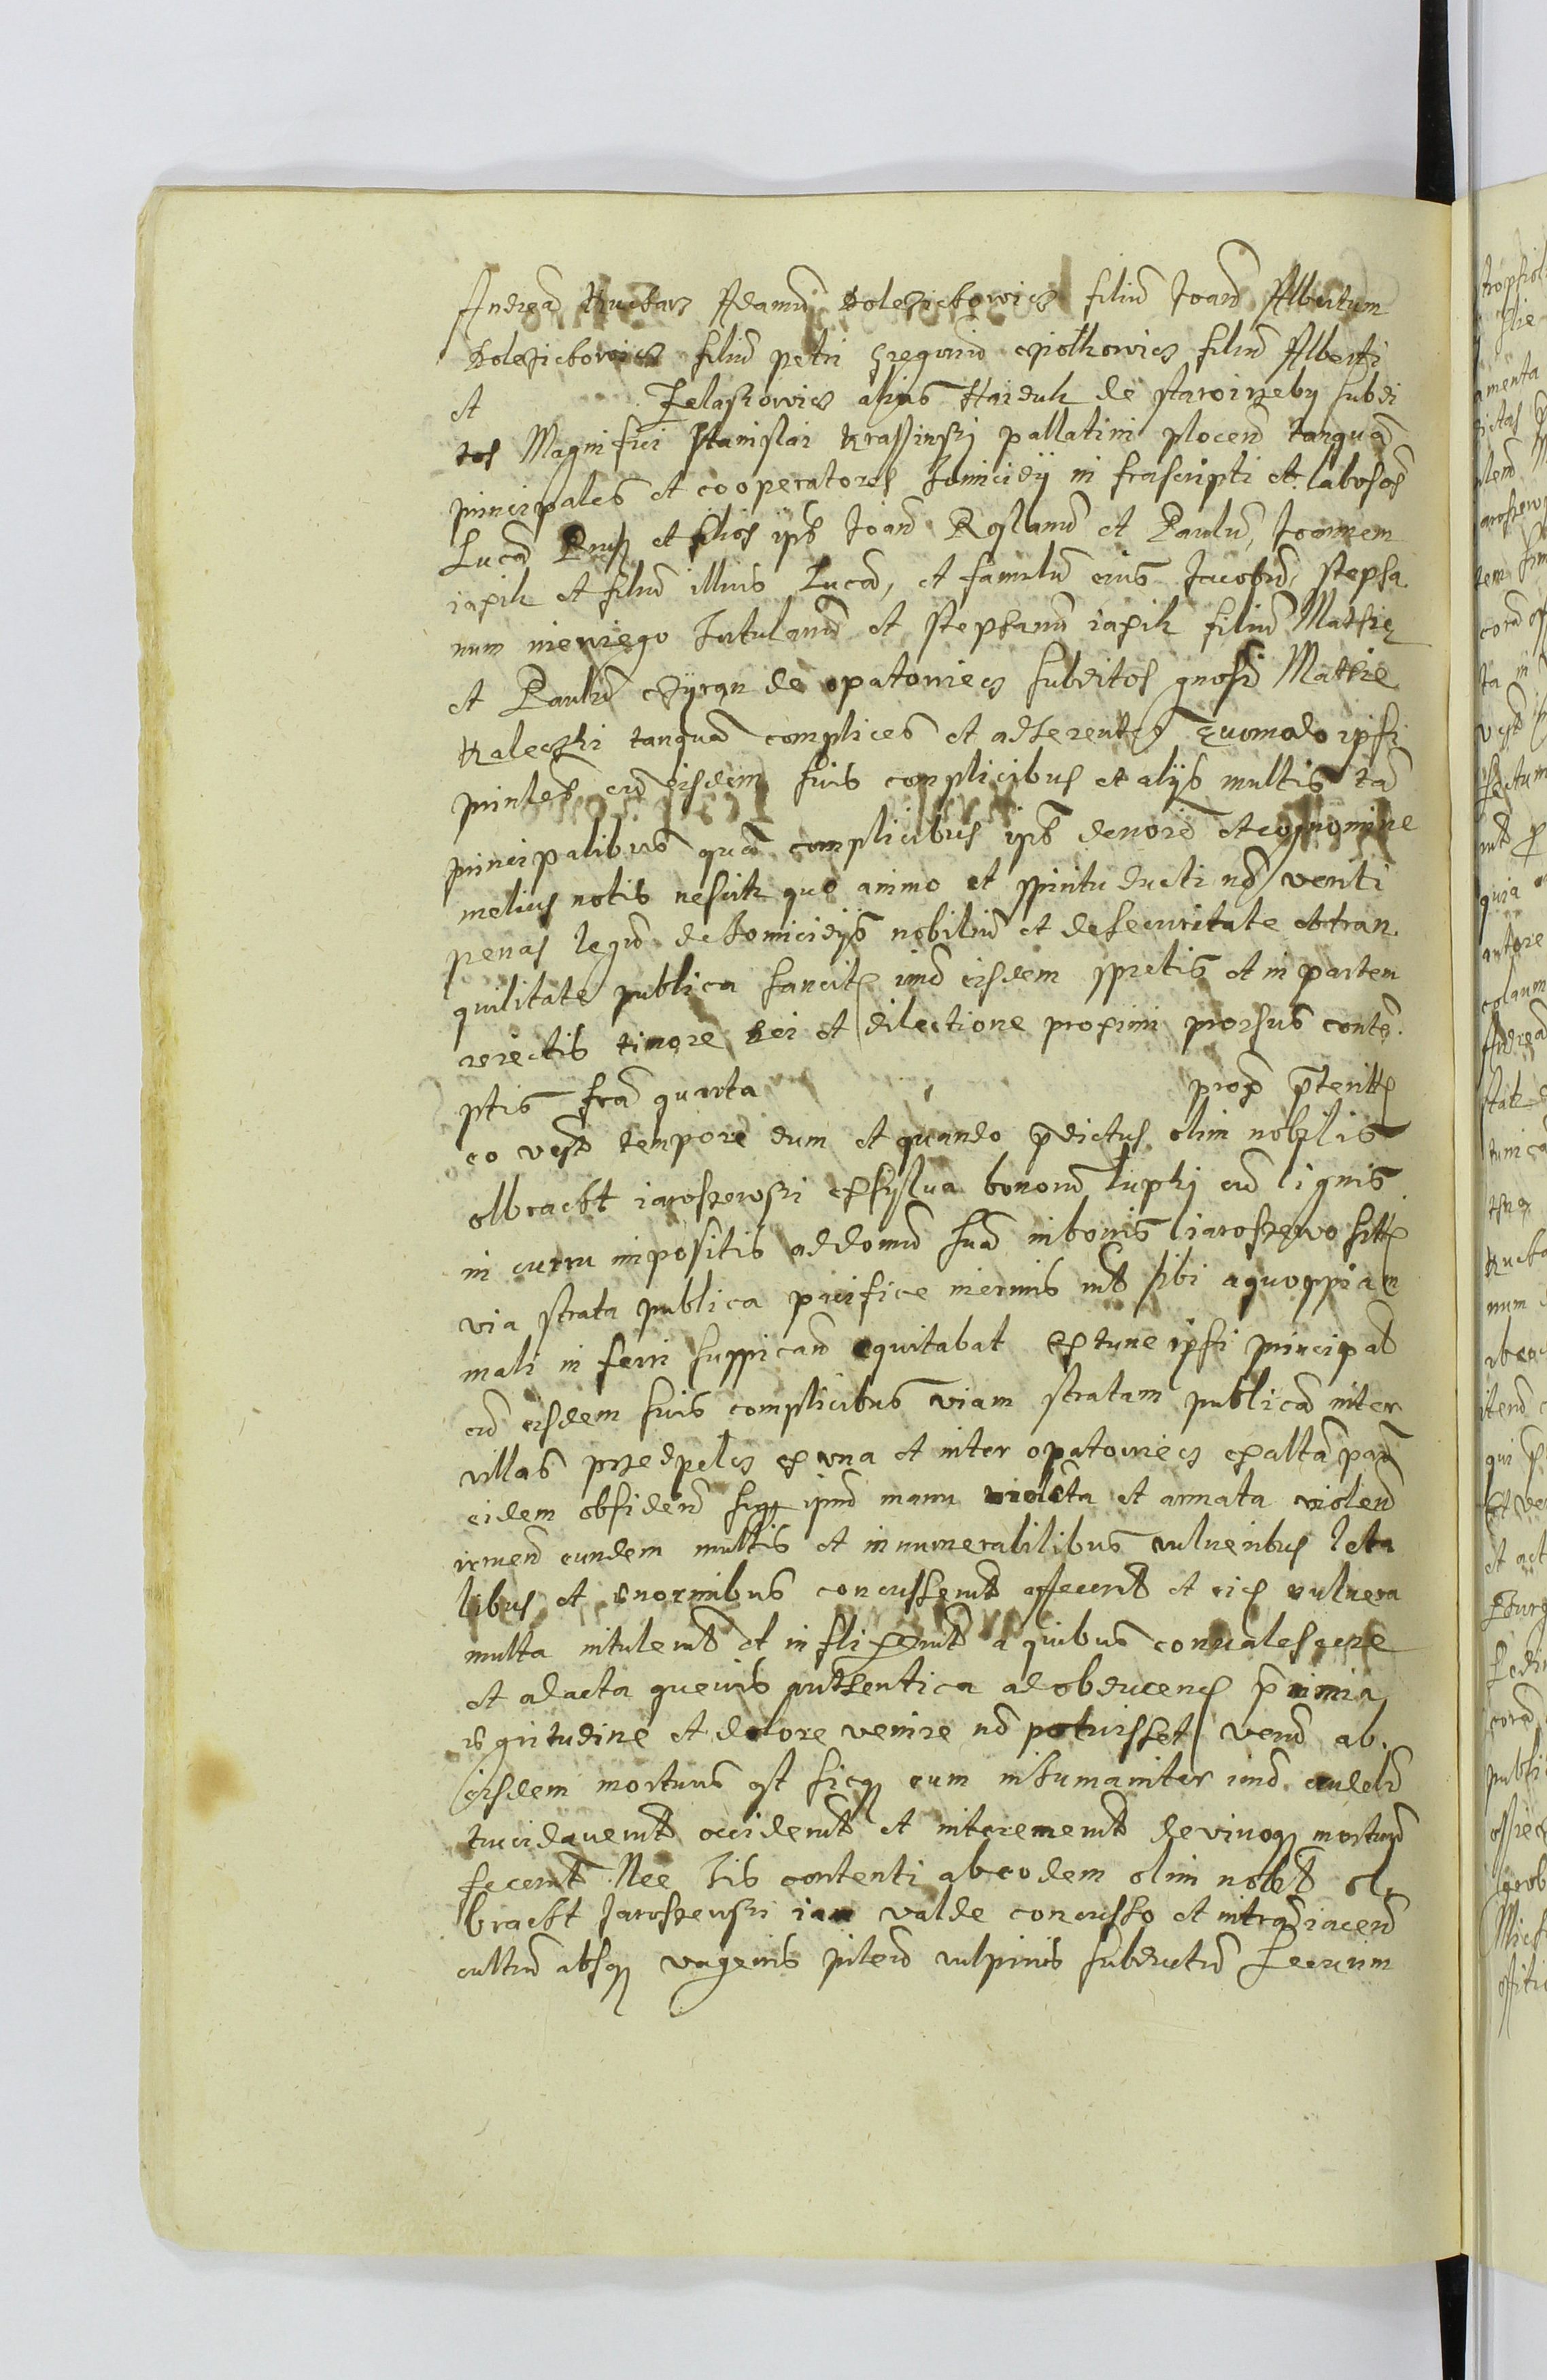 Andreã Kucharz Adamũ Dolezichowicz filiũ Joañ Albertum
Dolezichowicz filiũ petri Gregoriũ cziolkowicz filiũ Alberti
et Zelaskowicz alias Haiduk de staroizreby subdi
tos Magnifici stanislai Krassinskj pallatini plocen̄ tanquã
principales et cooperatores homicidÿ in frascripti et labosos
Lucã et filios ipš Joañ et Paulũ, Joannem
iapik et filiũ illius Lucã, et famulũ eius Jacobũ, stepha
num niewiego hortulanũ et stephanũ iapik filiũ Mathię
et Paulũ de opatowiecz subditos gnosi Mathie
Kaleczki tanquã complices et adherentes Quomodo ipsi
prinles cũ eisdem suis complicibus et alÿs multis tã
principalibus quã complicibus ipš de noie et cognomine
melius notis nescitur quo animo et spiritu ducti nõ veriti
penas legũ de homicidÿs nobiliũ et de securitate et tran
quilitate publica sancitas imo eisdem spretis et in partem
reiectis timore Dei et dilectione proximi prorsus contē
ptis fřia quarta prox p̄terita
eo vesp̄ tempore dum et quando p̄dictus olim nobilis
olbracht iaroszewski ex sylua bonorũ lupkj cũ lignis
in curru impositis ad domũ suã in bonis iaroszewo sitã
via strata publica pacifice inermis nil sibi a quoppiam
mali in ferri suspicañ equitabat extunc ipsi principales
cũ eisdem suis complicibus viam stratam publicã inter
villas przedpelcz ex una et inter opatowiecz ex altã parte
eidem obsideñ ipm̄ manu violēta et armata violeñ
irrueñ eundem multis et innumerabilibus vulneribus leta
libus et enormibus concusserũt affecerũt et eius vulnera
multa intulerũt et inflixerũt a quibus conualescere
et ad acta queuis authentica ad obducenď p̄ nimia
egritudine et dolore venire nõ potuisset verũ ab
eisdem mortuus est sicq3 eum inhumaniter imo crudelr̄
trucidauerũt occiderũt et interemerũt de vivoq3 mortuũ
fecerũt Nec his contenti ab eodem olim nobili ol
bracht Jaroszewski iam valde concusso et in terra iaceñ
cultrũ absq3 vagenis piteũ vulpinis subductũ